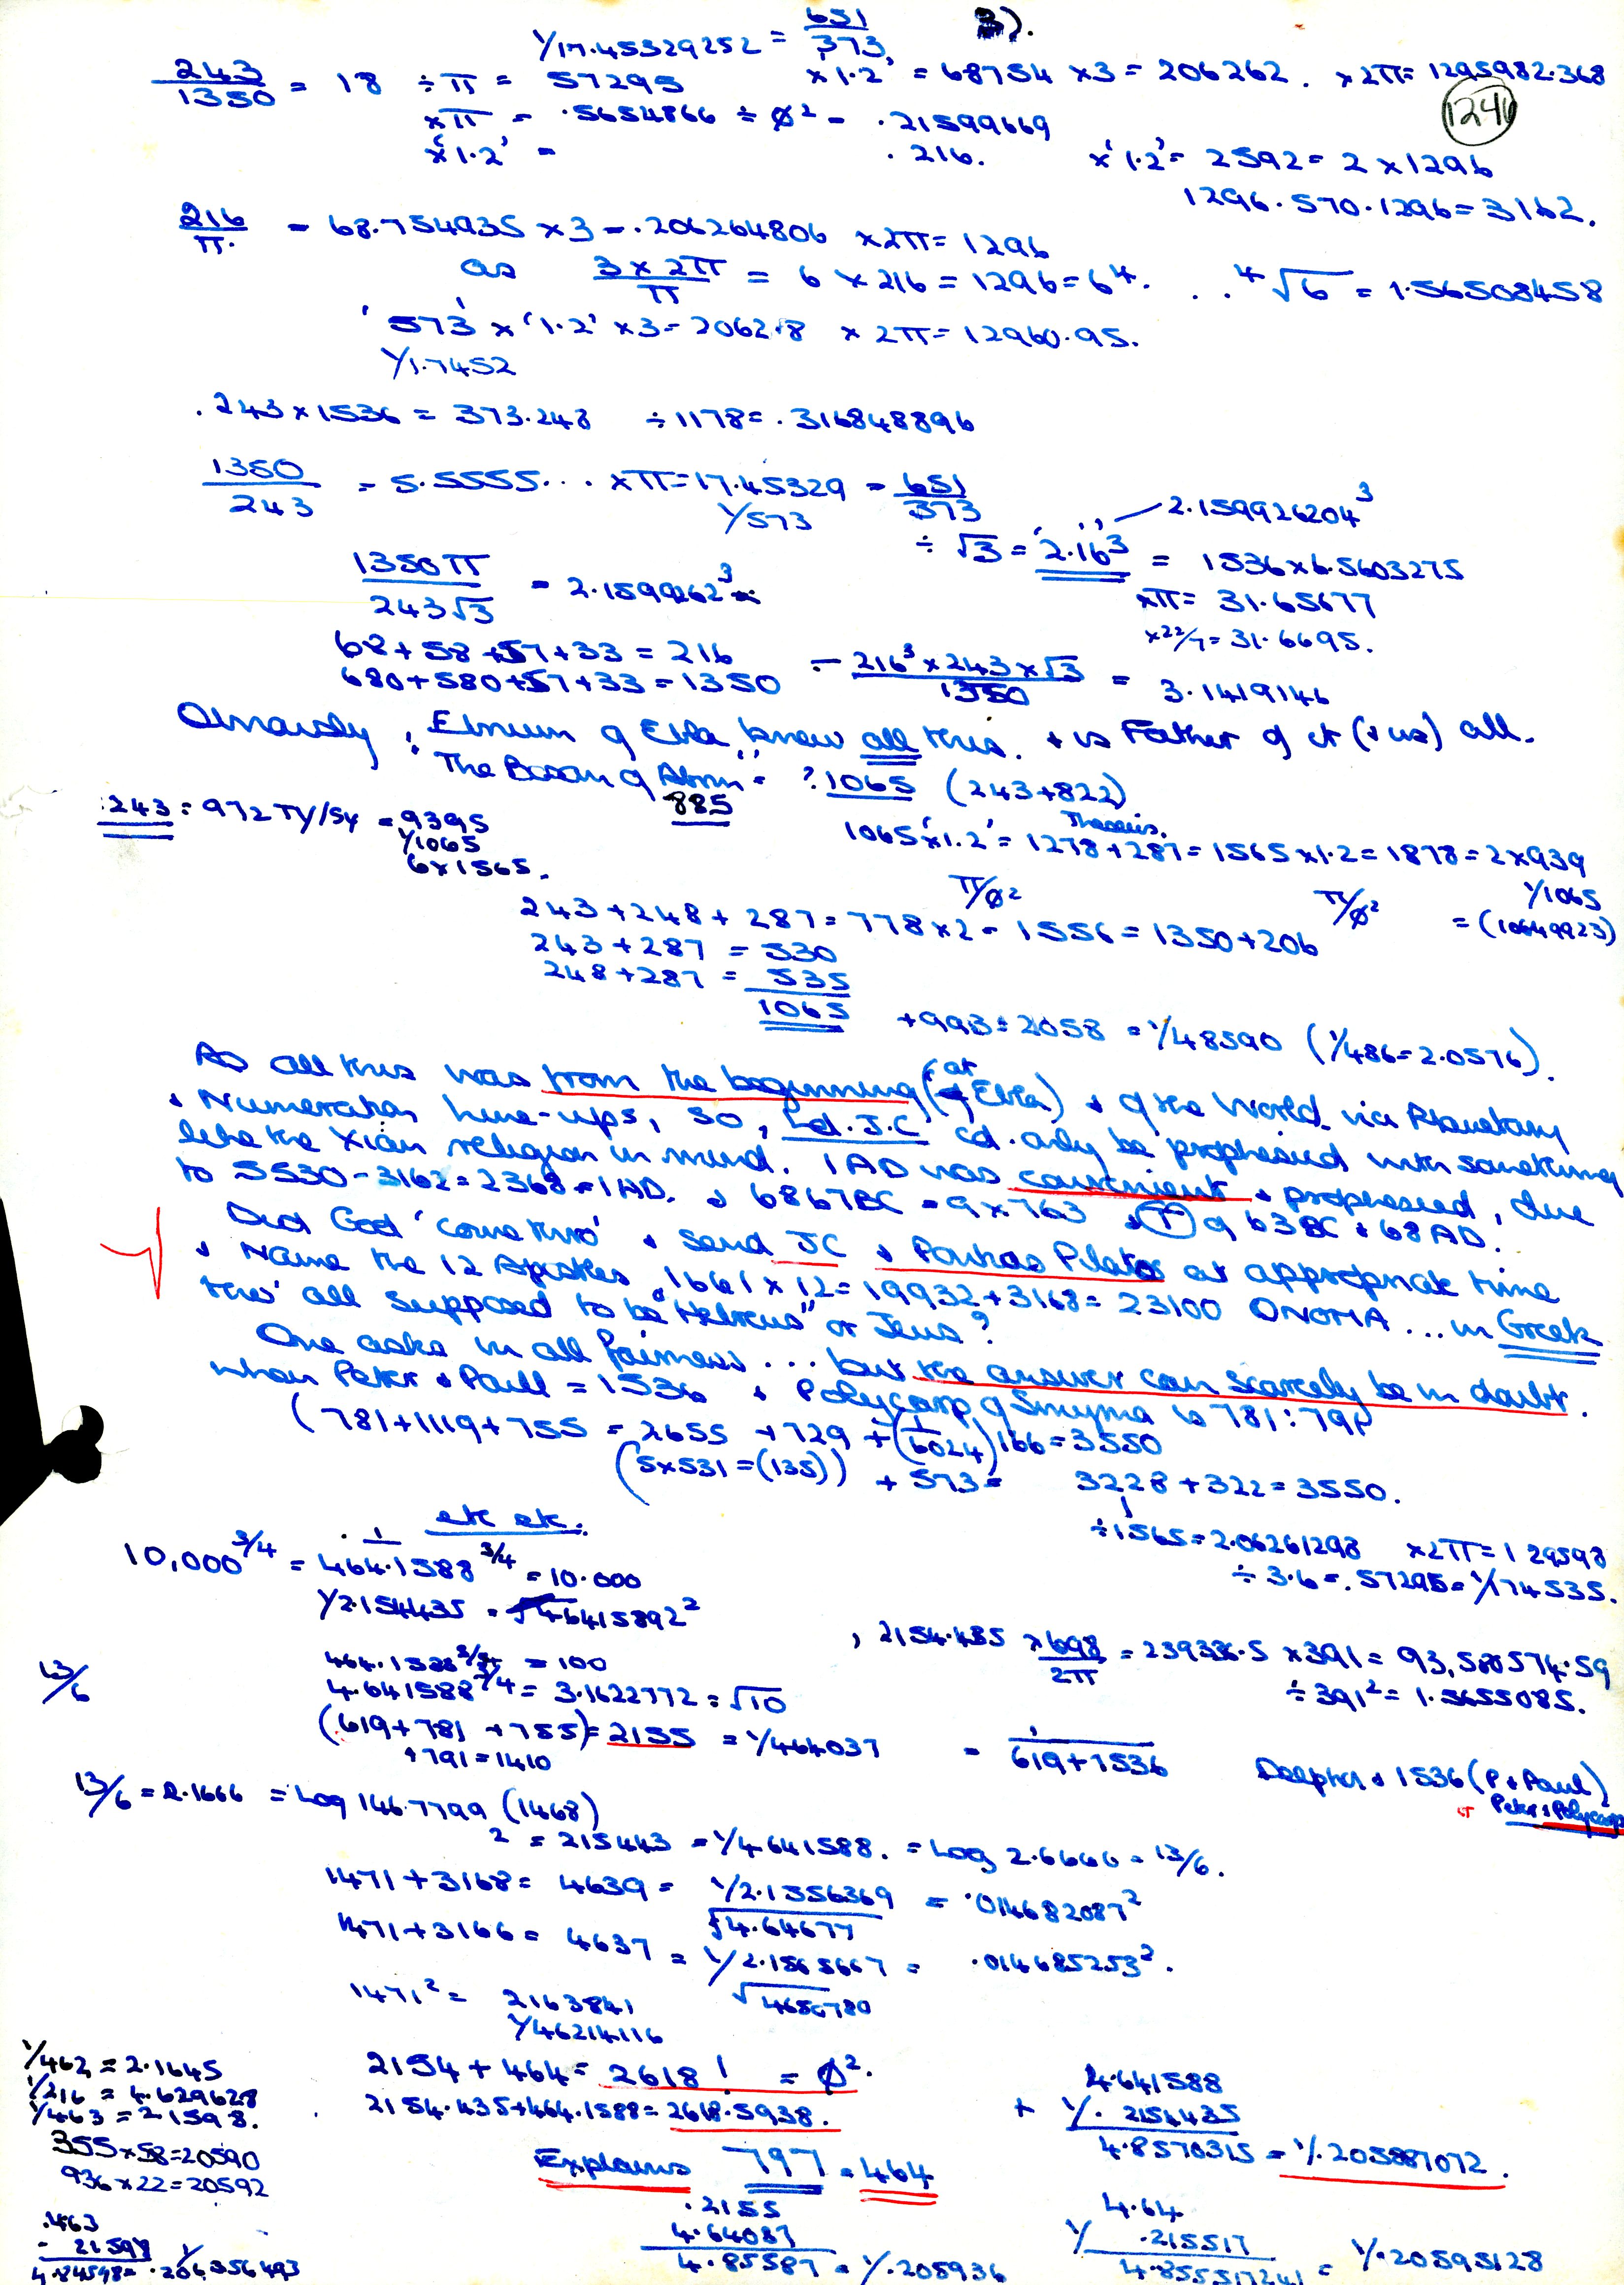 1/17.45329252 = 651/373, 3).
243/1350 = 18 ÷ π = 57295 × 1.2' = 68754 × 3 = 206262. × 2π = 1295982.368
× π = .5654866 ÷ ø² = .21599669
(1246)
× '1.2' = .216. × '1.2' = 2592 = 2 × 1296
1296.570.1296 = 3162.
216/π. = 68.754935 × 3 = .206264806 × 2π = 1296
as 3 × 2π/π = 6 × 216 = 1296 = 6⁴. . . ⁴√6 = 1.56508458
'573' × '1.2' × 3 = 2062.8 × 2π = 12960.95.
1/1.7452
.243 × 1536 = 373.248 ÷ 1178 = .316848896
1350/243 = 5.5555... × π = 17.45329 = 651/373
1/573
2.159926204³
÷ √3 = '2.16'³ = 1536 × 6.5603275
1350π/243√3 = 2.1599262³
× π = 31.65677
× 22/7 = 31.6695.
68 + 58 + 57 + 33 = 216
680 + 580 + 57 + 33 = 1350
216³ × 243 × √3/1350 = 3.1419146
Obviously, Ebrium of Ebla, knew all this. + is Father of it (+ us) all.
"The Bosom of Abm" = ? 1065 (243 + 822)
885
243 = 972 TY/SY = 9395
1/1065
6 × 1565.
Theseus.
1065 × '1.2' = 1278 + 287 = 1565 × 1.2 = 1878 = 2 × 939
π/ø² π/ø² 1/1065
= (10649923)
243 + 248 + 287 = 778 × 2 = 1556 = 1350 + 206
243 + 287 = 530
248 + 287 = 535
1065 + 993 = 2058 = 1/48590 (1/486 = 2.0576).
As all this was from the beginning (at Ebla) + of the World via Planetary
+ Numeration line-ups, so, Ld. J.C cd. only be prophesied with something
like the Xian religion in mind. 1 AD was convenient + prophesied, due
to 5530 - 3162 = 2368 = 1 AD. + 6867 BC = 9 × 763 + T of 63 BC + 68 AD.
Did God 'come thro' + send JC + Pontias Pilatos at appropriate time
+ Name the 12 Apostles 1661 × 12 = 19932 + 3168 = 23100 ONOMA ... in Greek
tho' all supposed to be "Hebrews" or Jews?
One asks in all fairness ... but the answer can scarcely be in doubt.
when Peter + Paul = 1536 + Polycarp of Smyrna is 781: 791
(781 + 1119 + 755 = 2655 + 729 + (1/6024) 166 = 3550
(5 × 531 = (135)) + 573 = 3228 + 322 = 3550.
etc etc.
÷ 1565 = 2.06261298 × 2π = 1.29598
÷ 3.6 = .57295 = 1/174535.
10,000^3/4 = 464.1588^3/4 = 10.000
1/2.154435 = 46415892²
, 2154.435 × 698/2π = 239336.5 × 391 = 93,580574.59
÷ 391² = 1.5655085.
13/6
464.1588^3/4 = 100
4.641588^3/4 = 3.1622772 = √10
(619 + 781 + 755) = 2155 = 1/464037 = 1/619 + 1536
+ 791 = 1410
Delphoi + 1536 (P + Paul)
or Peter + Polycarp
13/6 = 2.1666 = Log 146.7799 (1468)
² = 215443 = 1/4.641588. = Log 2.6666 = 13/6.
1471 + 3168 = 4639 = 1/2.1556369 = .014682087²
√4.64677
1471 + 3166 = 4637 = 1/2.1565667 = .014685253².
√4650780
1471² = 2163841
1/46214116
1/462 = 2.1645
1/216 = 4.629628
1/463 = 21598.
355 × 58 = 20590
936 × 22 = 20592
2154 + 464 = 2618! = ø².
2154.435 + 464.1588 = 2618.5938.
4.641588
+ 1/.2154435
4.8570315 = 1/.205887072.
Explains 797 = 464
.2155
4.64037
4.85587 = 1/.205936
4.64
1/.215517
4.855517241 = 1/.20595128
.463
- 21598
4.84598 = 1/.206356493